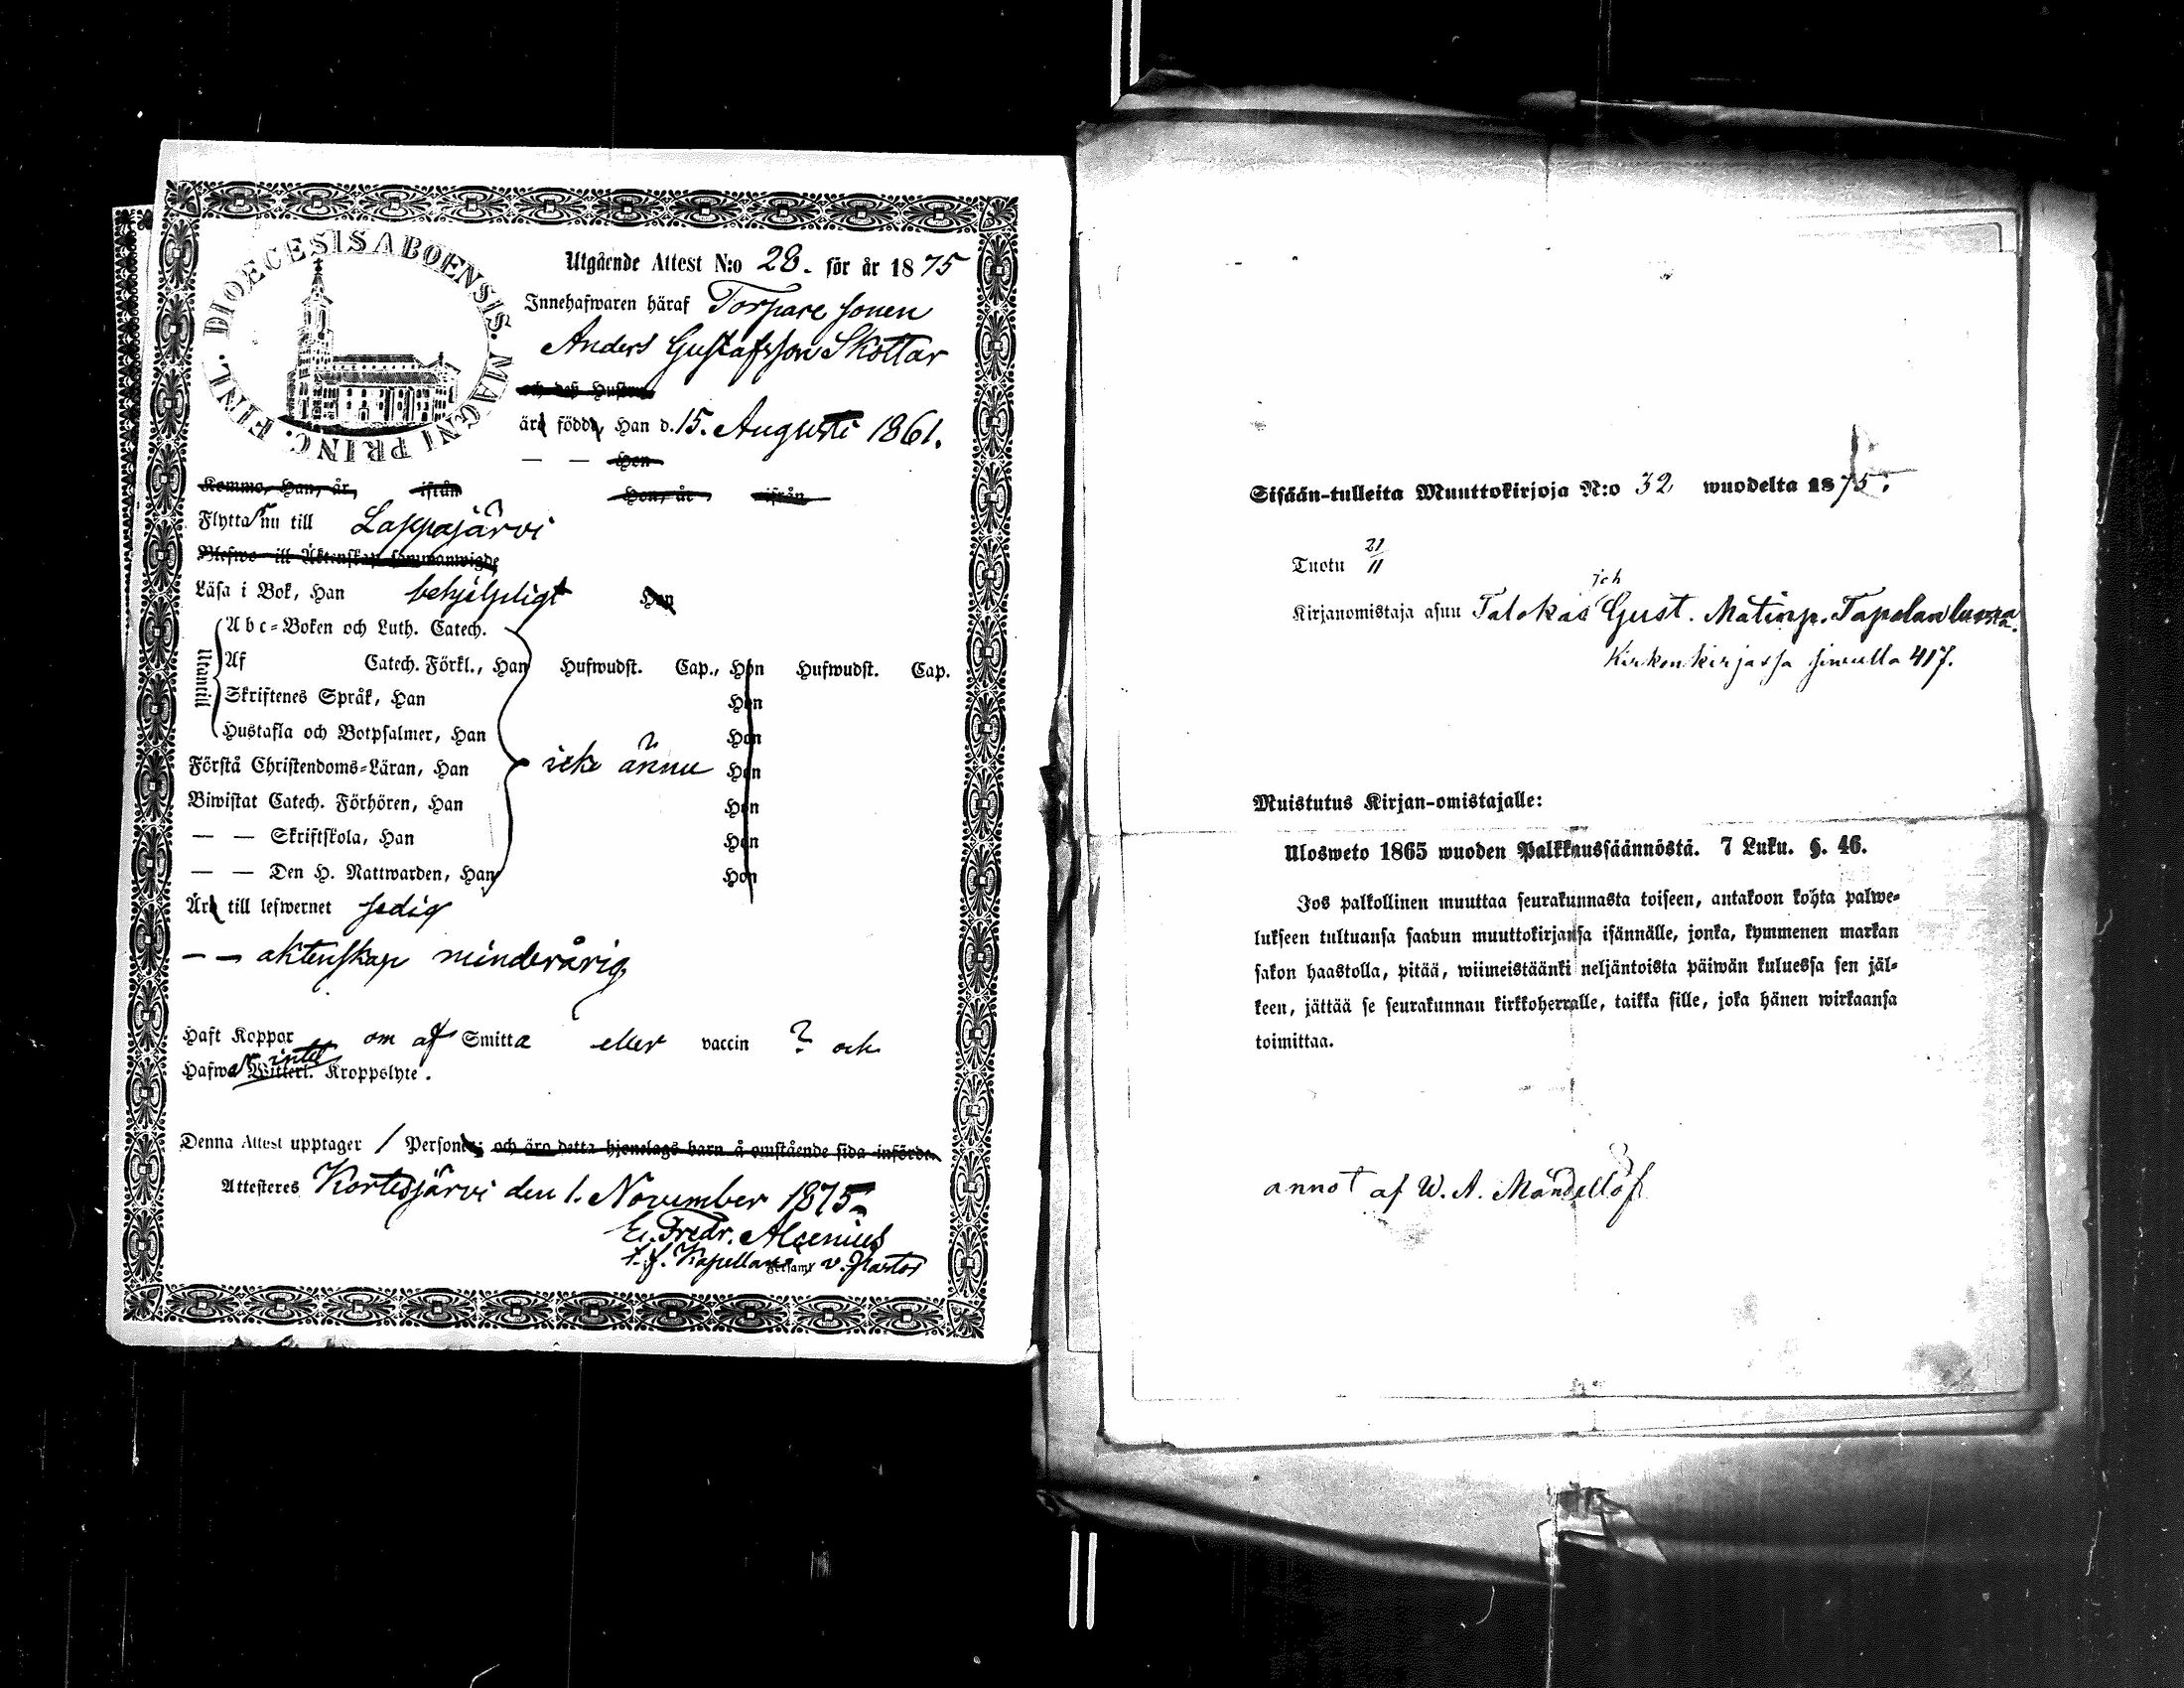 DIOECESIS ABOENSIS. MAGNI PRINC. FINL.
Utgående Attest N:o 28. för år 1875
Innehafwaren häraf Torpare sonen
Anders Gustafsson Skottar
och des Hustru
ära födda, Han d. 15. Augusti 1861.
— — Hon
Kommo, Han, år, ifrån Hon, år, ifrån
Flytta r nu till Lappajärvi
Blefwo till Äktenskap sammanwigde
Läsa i Bok, Han behjelpligt Hon
Utantill
Abc-Boken och Luth. Catech.
Af Catech. Förkl., Han Hufwudst. Cap., Hon Hufwudst. Cap.
Skriftenes Språk, Han Hon
Hustafla och Botpsalmer, Han Hon
Förstå Christendoms-Läran, Han icke ännu Hon
Biwistat Catech. Förhören, Han Hon
— — Skriftskola, Han Hon
— — Den H. Nattwarden, Han Hon
Är till lefwernet sedig
— — äktenskap minderårig
Haft Koppor om af Smitta eller vaccin ? och
Hafwa r intet Witterl. Kroppslyte.
Denna Attest upptager 1 Personer; och äro detta hjonelags barn å omstående sida införde.
Attesteres Kortesjärvi den 1. November 1875.
E. Fredr. Alcenius
t. f. Kapellan v. Pastor
Sisään-tulleita Muuttokirjoja N:o 32, wuodelta 1875.
Tuotu 21/11
Kirjanomistaja asuu Talokas Joh Gust. Matinp. Tapolan luona.
Kirkonkirjassa sivulla 417.
Muistutus Kirjan-omistajalle:
Ulosweto 1865 wuoden Palkkaussäännöstä. 7 Luku. §. 46.
Jos palkollinen muuttaa seurakunnasta toiseen, antakoon kohta palwe-
lukseen tultuansa saadun muuttokirjansa isännälle, jonka, kymmenen markan
sakon haastolla, pitää, wiimeistäänki neljäntoista päiwän kuluessa sen jäl-
keen, jättää se seurakunnan kirkkoherralle, taikka sille, joka hänen wirkaansa
toimittaa.
annot af W. A. Mandellöf